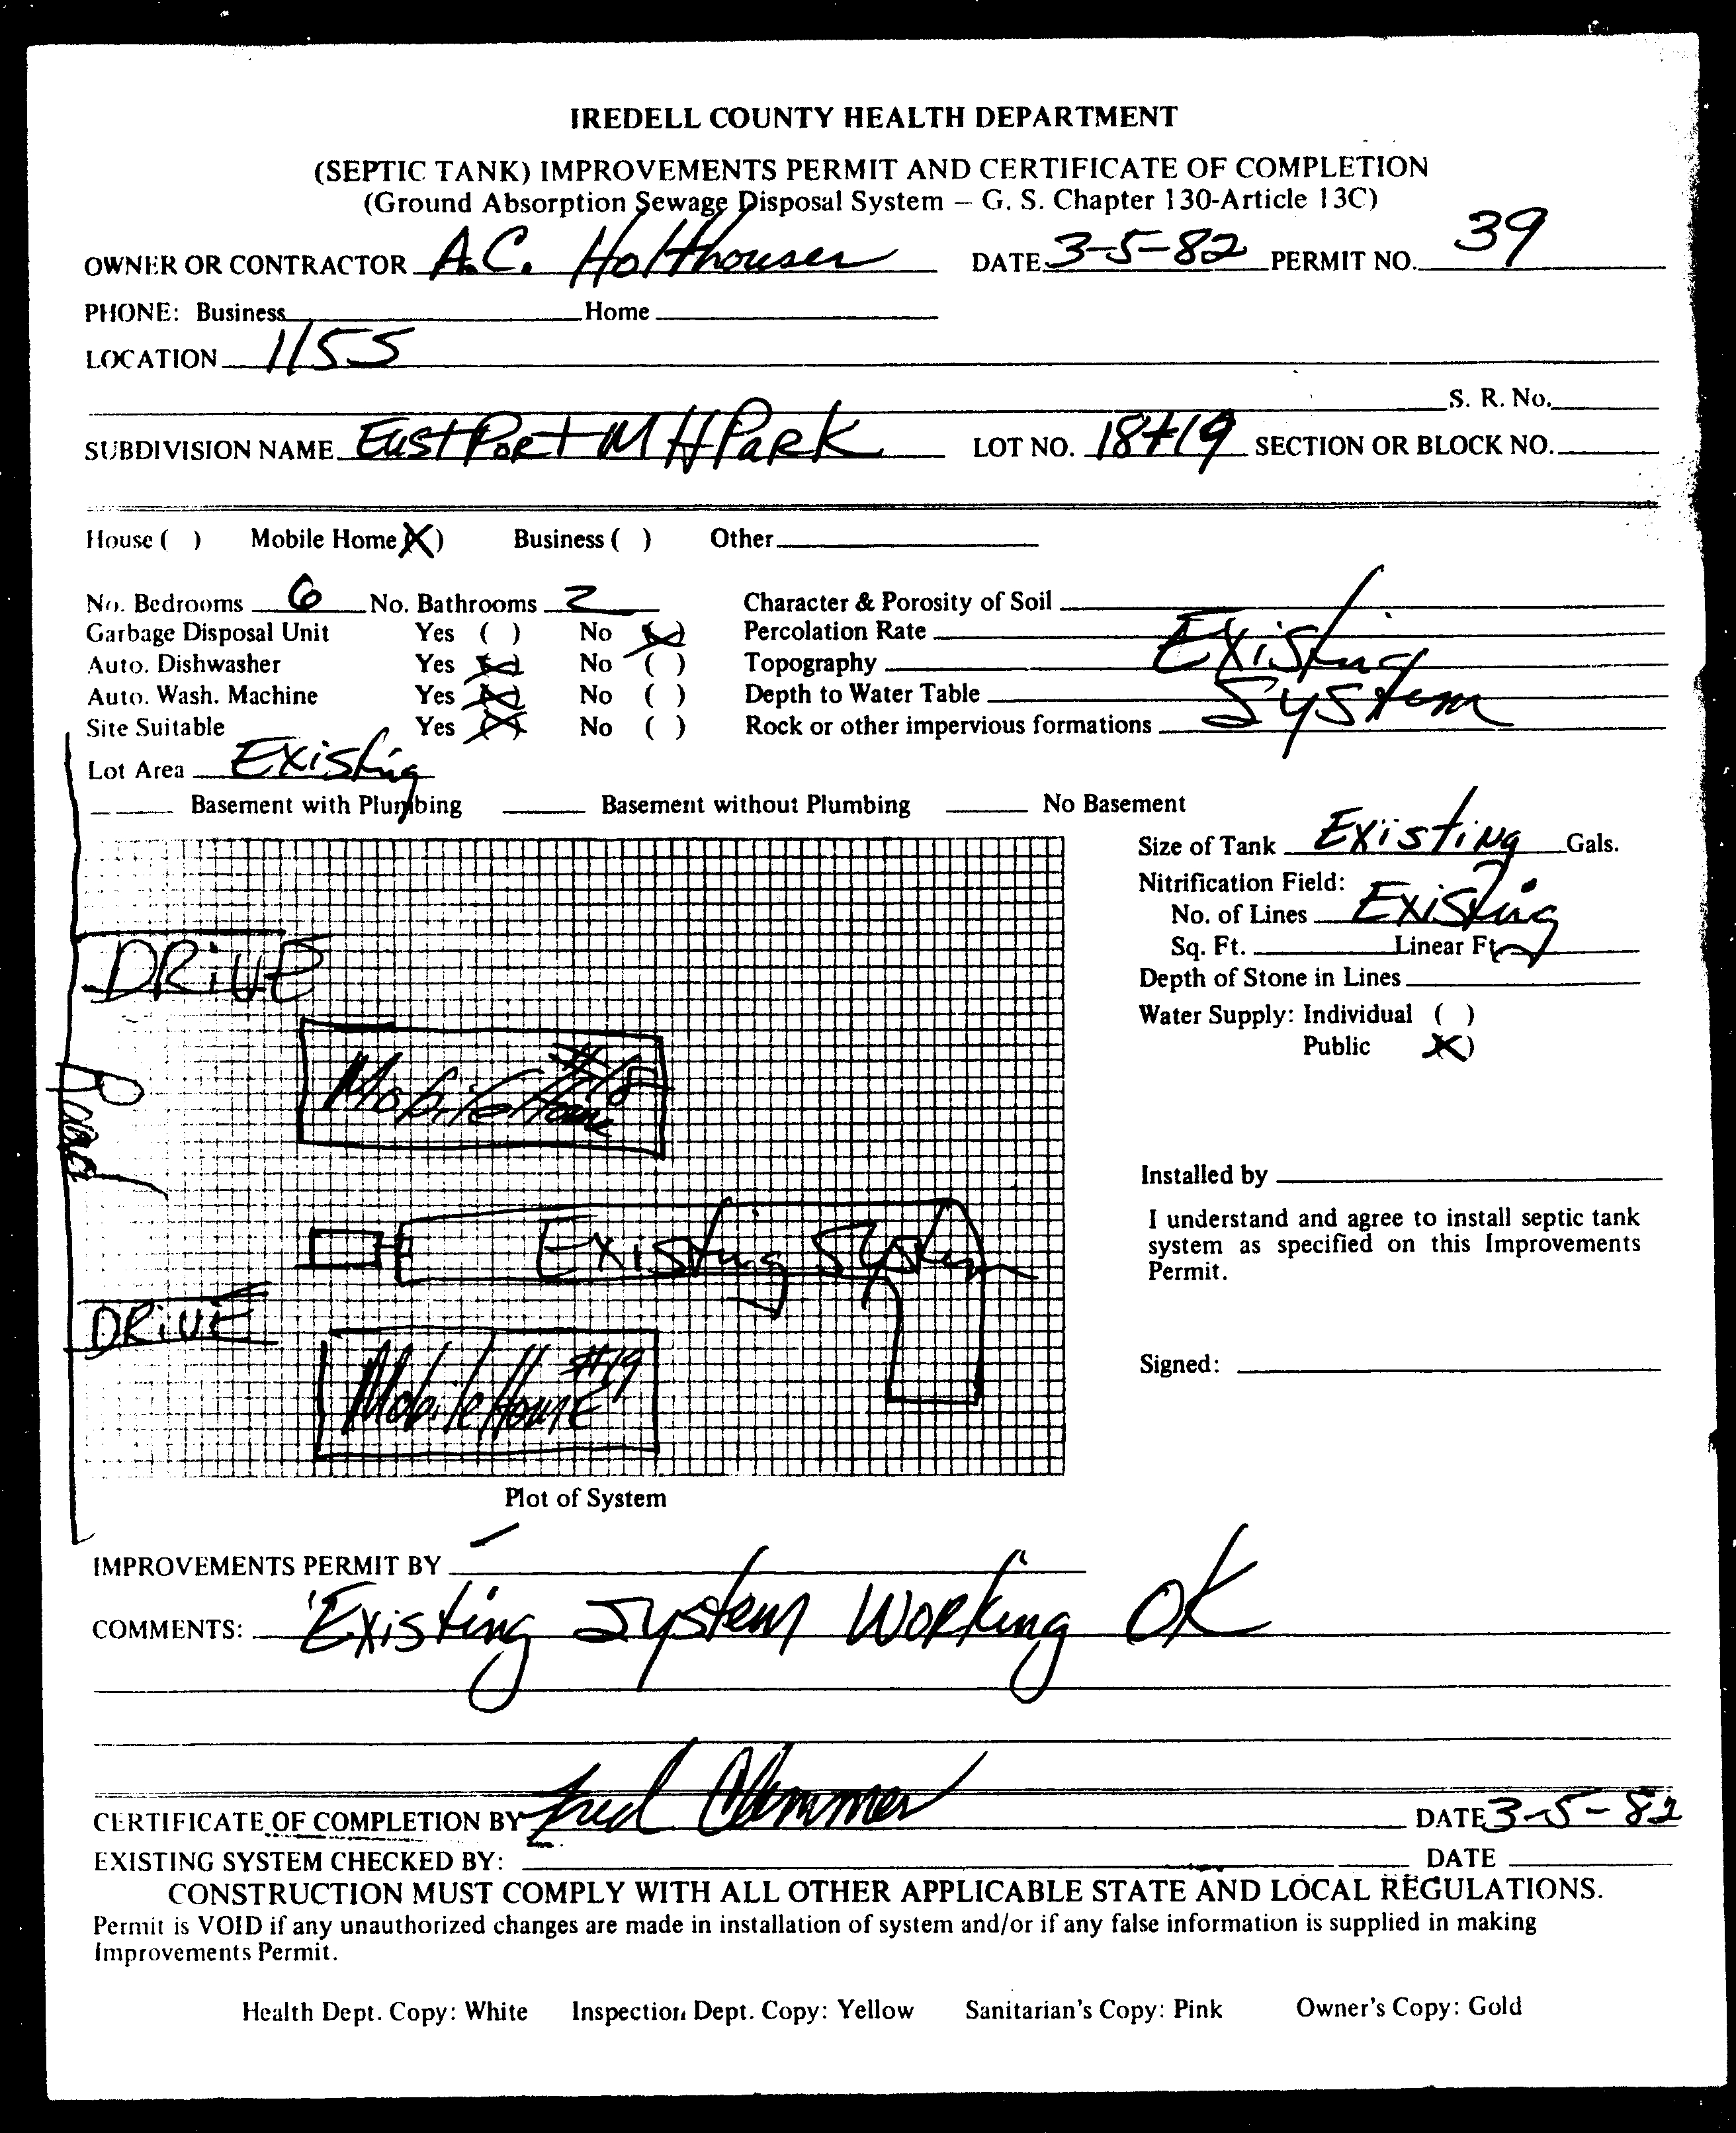 IREDELL COUNTY HEALTH DEPARTMENT
(SEPTIC TANK) IMPROVEMENTS PERMIT AND CERTIFICATE OF COMPLETION
(Ground Absorption Sewage Disposal System – G. S. Chapter 130-Article 13C)
OWNER OR CONTRACTOR A.C. Holthouser DATE 3-5-82 PERMIT NO. 39
PHONE: Business Home
LOCATION 1155
S. R. No.
SUBDIVISION NAME EastPort M H Park LOT NO. 18+19 SECTION OR BLOCK NO.
House ( ) Mobile Home (X) Business ( ) Other
No. Bedrooms 6 No. Bathrooms 2 Character & Porosity of Soil
Garbage Disposal Unit Yes ( ) No (X) Percolation Rate Existing
Auto. Dishwasher Yes (X) No ( ) Topography
Auto. Wash. Machine Yes (X) No ( ) Depth to Water Table System
Site Suitable Yes (X) No ( ) Rock or other impervious formations
Lot Area Existing
Basement with Plumbing Basement without Plumbing No Basement
Size of Tank Existing Gals.
Nitrification Field:
No. of Lines Existing
Sq. Ft. Linear Ft.
Depth of Stone in Lines
Water Supply: Individual ( )
Public (X)
DRIVE
Mobile Home #18
Road
Existing System
DRIVE
Mobile Home #19
Installed by
I understand and agree to install septic tank
system as specified on this Improvements
Permit.
Signed:
Plot of System
IMPROVEMENTS PERMIT BY
COMMENTS: Existing System Working OK
CERTIFICATE OF COMPLETION BY Fred Clemmer DATE 3-5-82
EXISTING SYSTEM CHECKED BY: DATE
CONSTRUCTION MUST COMPLY WITH ALL OTHER APPLICABLE STATE AND LOCAL REGULATIONS.
Permit is VOID if any unauthorized changes are made in installation of system and/or if any false information is supplied in making
Improvements Permit.
Health Dept. Copy: White Inspection Dept. Copy: Yellow Sanitarian's Copy: Pink Owner's Copy: Gold